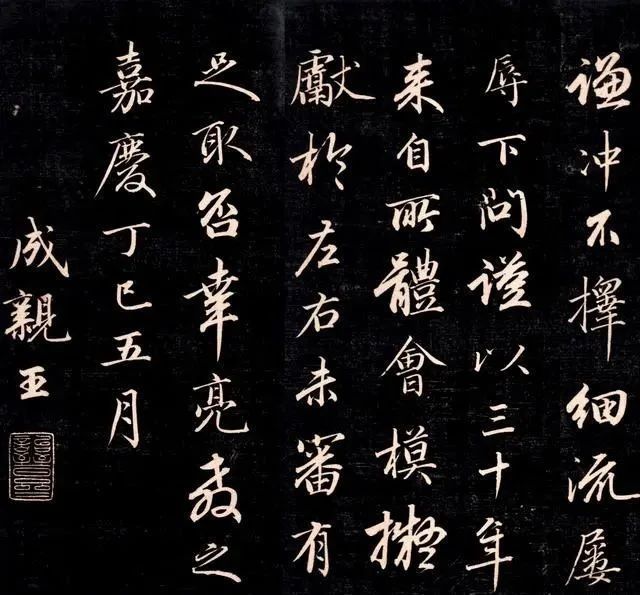 谦冲不擇細流屢
辱下问谨以三十年
来自所體會模擬
獻於左右未審有
足取否幸亮教之
嘉慶丁巳五月
成親王